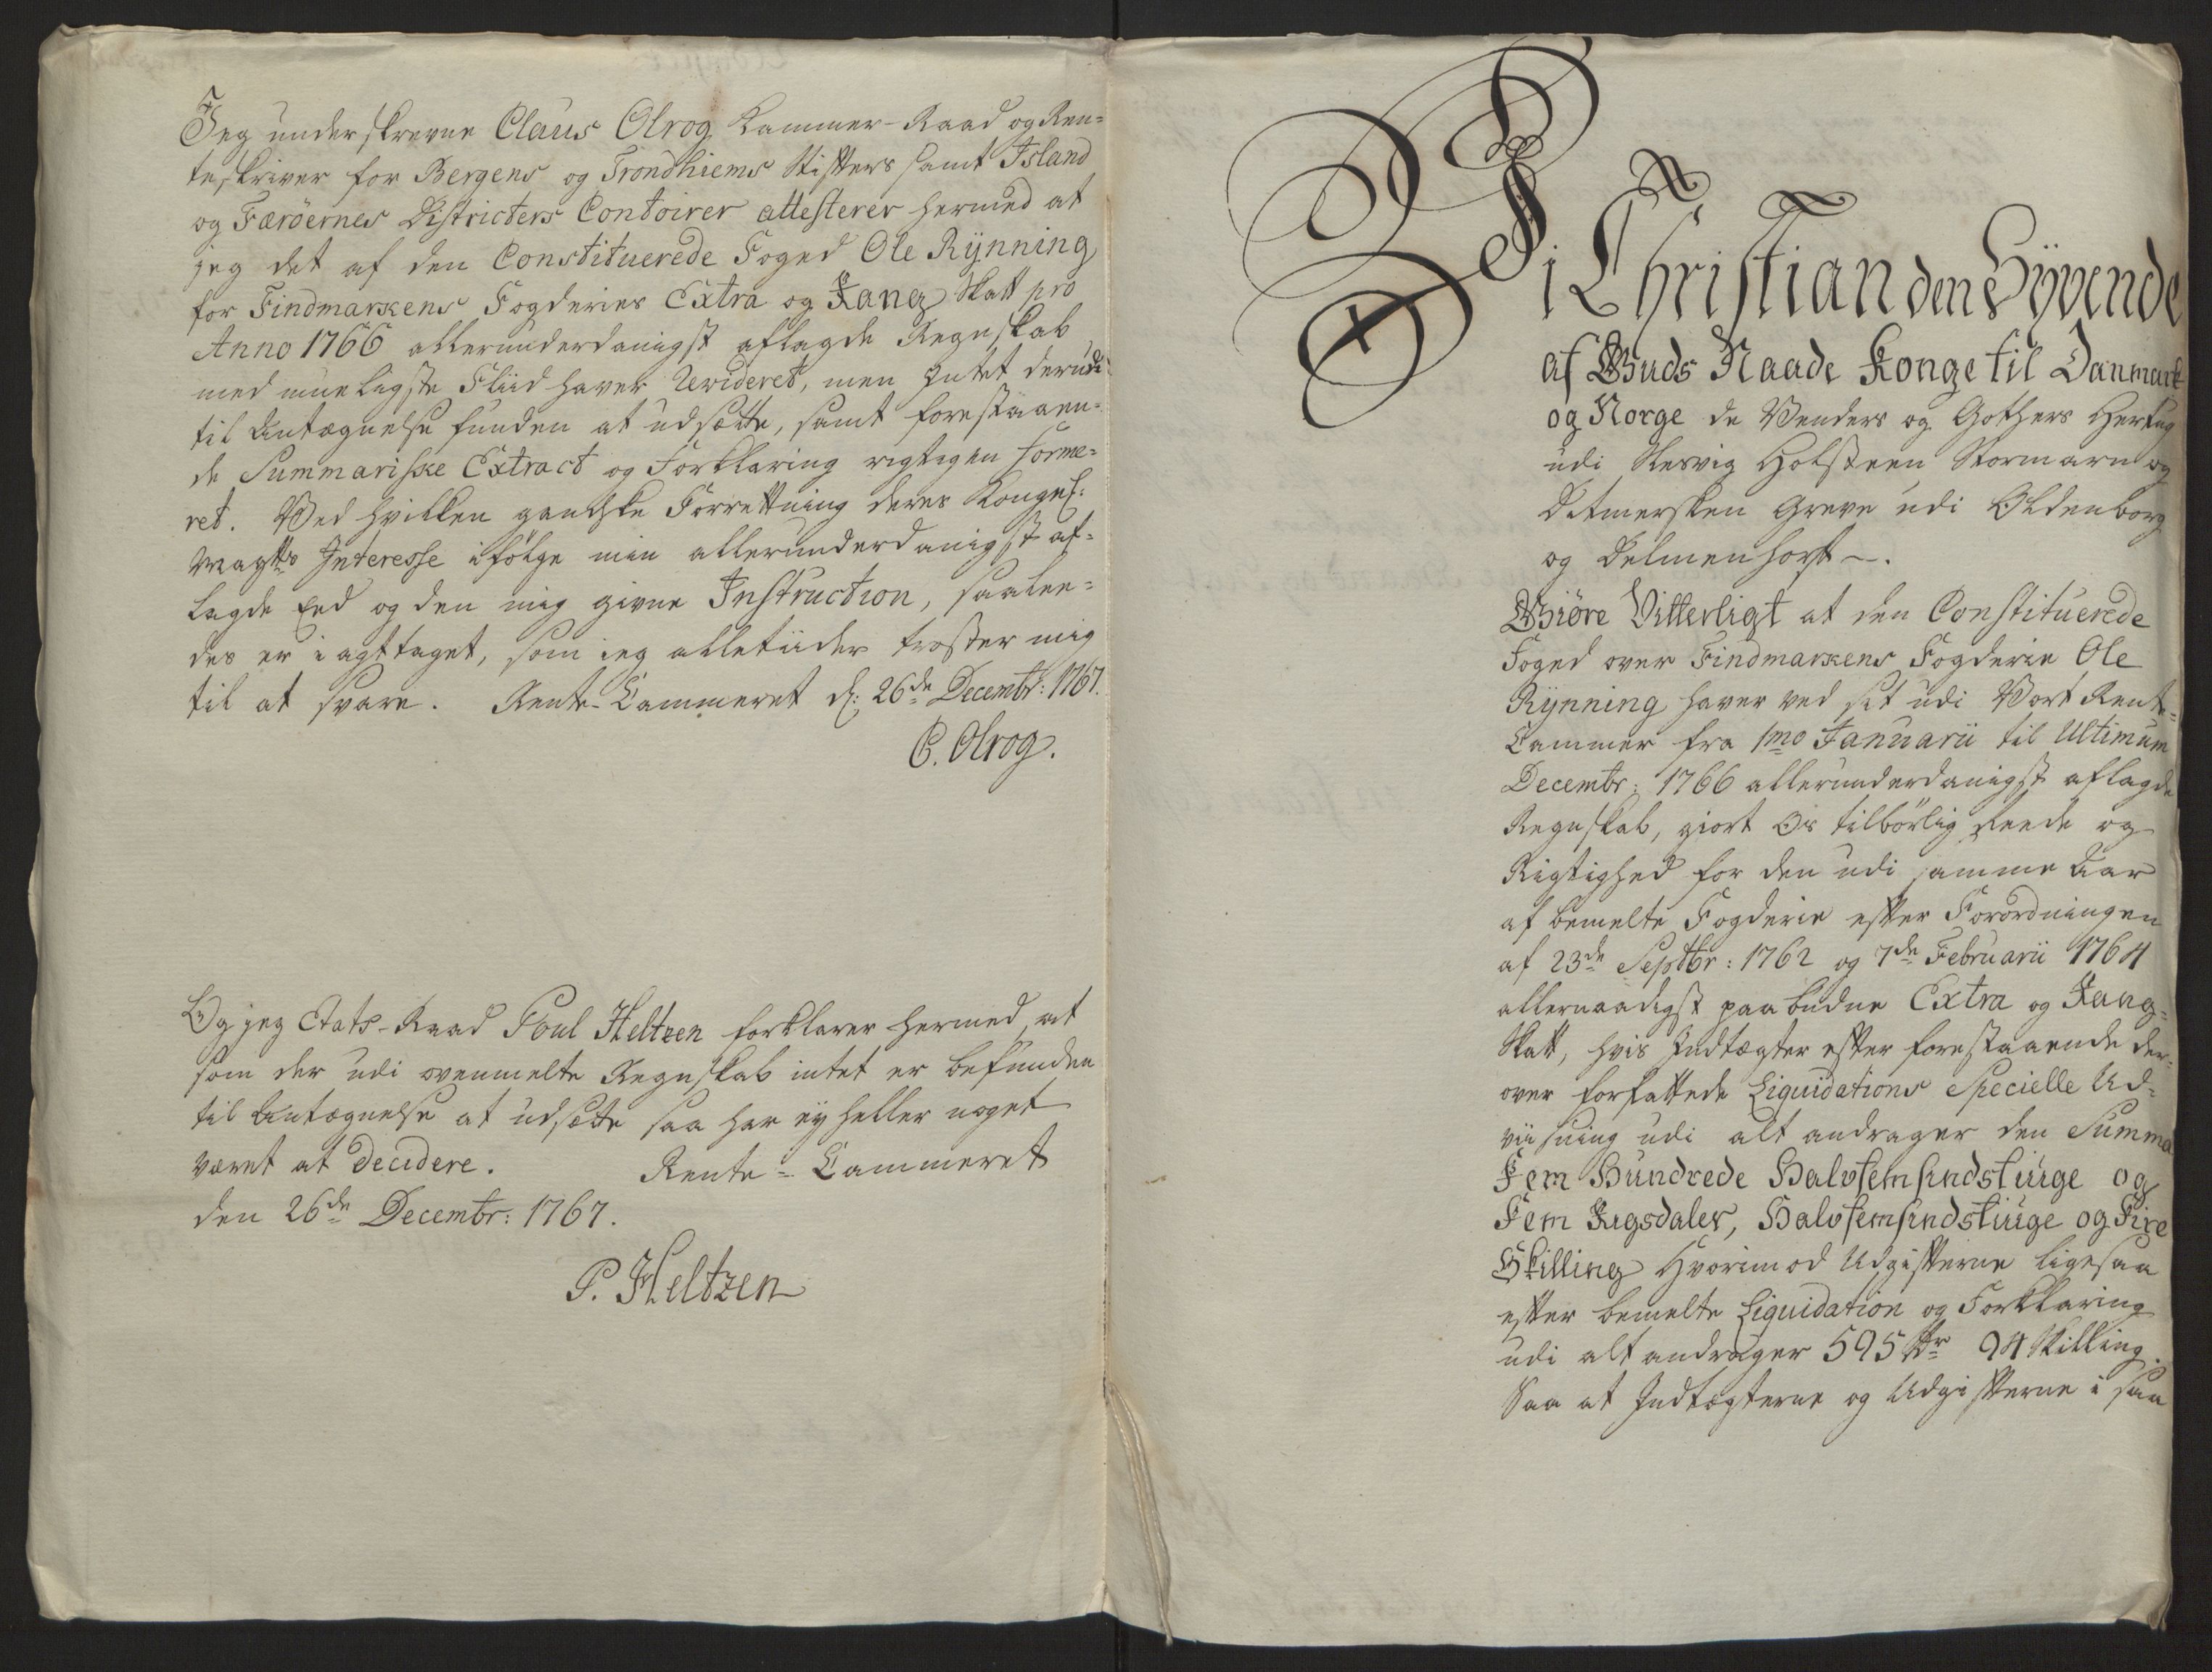 Jeg underskrevne Claus Olrog Kammer-Raad og Ren=
teskriver for Bergens og Trondhiems Stifters samt Island
og Færöernes Districters Contoirer attesterer hermed at
jeg det af den Constituerede Foged Ole Rÿnning
for Findmarkens Fogderies Extra og Rang Skatt pro
Anno 1766 allerunderdanigst aflagde Regnskab
med mueligste Fliid haver Revideret, men Intet derudi
til Antægnelse funden at udsætte, samt forestaaen=
de Summariske Extract og Forklaring rigtigen forme=
ret. Ved hvilken gandske Forrettning deres Kongel:
Maytts Interesse ifölge min allerunderdanigst af=
lagde Eed og den mig givne Instruction, saalee=
des er iagttaget, som jeg alletiider tröster mig
til at svare. Rente-Cammeret d: 26de Decembr: 1767.
C. Olrog.
Og jeg Etats-Raad Poul Heltzen forklarer hermed, at
som der udi ovenmelte Regnskab intet er befunden
til Antægnelse at udsætte saa har ey heller noget
været at decidere. Rente=Cammeret
den 26de Decembr: 1767.
P. Heltzen
Vi Christian den Syvende
af Guds Naade Konge til Danmark
og Norge de Venders og Gothers Hertug
udi Slesvig Holsteen Stormarn og
Ditmersken Greve udi Oldenborg
og Delmenhorst ~.
Giöre Vitterligt at den Constituerede
Foged over Findmarkens Fogderie Ole
Rÿnning haver ved sit udi Vort Rente=
Cammer fra 1mo Januarii til Ultimum
Decembr: 1766 allerunderdanigst aflagde
Regnskab, giort Os tilbörlig Reede og
Rigtighed for den udi samme Aar
af bemelte Fogderie efter Forordningen
af 23de Septbr: 1762 og 7de Februarii 1764
allernaadigst paabudne Extra og Rang=
Skatt, hvis Indtægter efter forestaaende der=
over forfattede Liquidations Specielle Ud=
viisning udi alt andrager den Summa
Fem Hundrede Halvfemsindstiuge og
Fem Rigsdaler, Halvfemsindstiuge og Fire
Skilling Hvorimod Udgifterne ligesaa
efter bemelte Liquidation og Forklaring
udi alt andrager 595 Rdr 94 Skilling.
Saa at Indtægterne og Udgifterne i saa